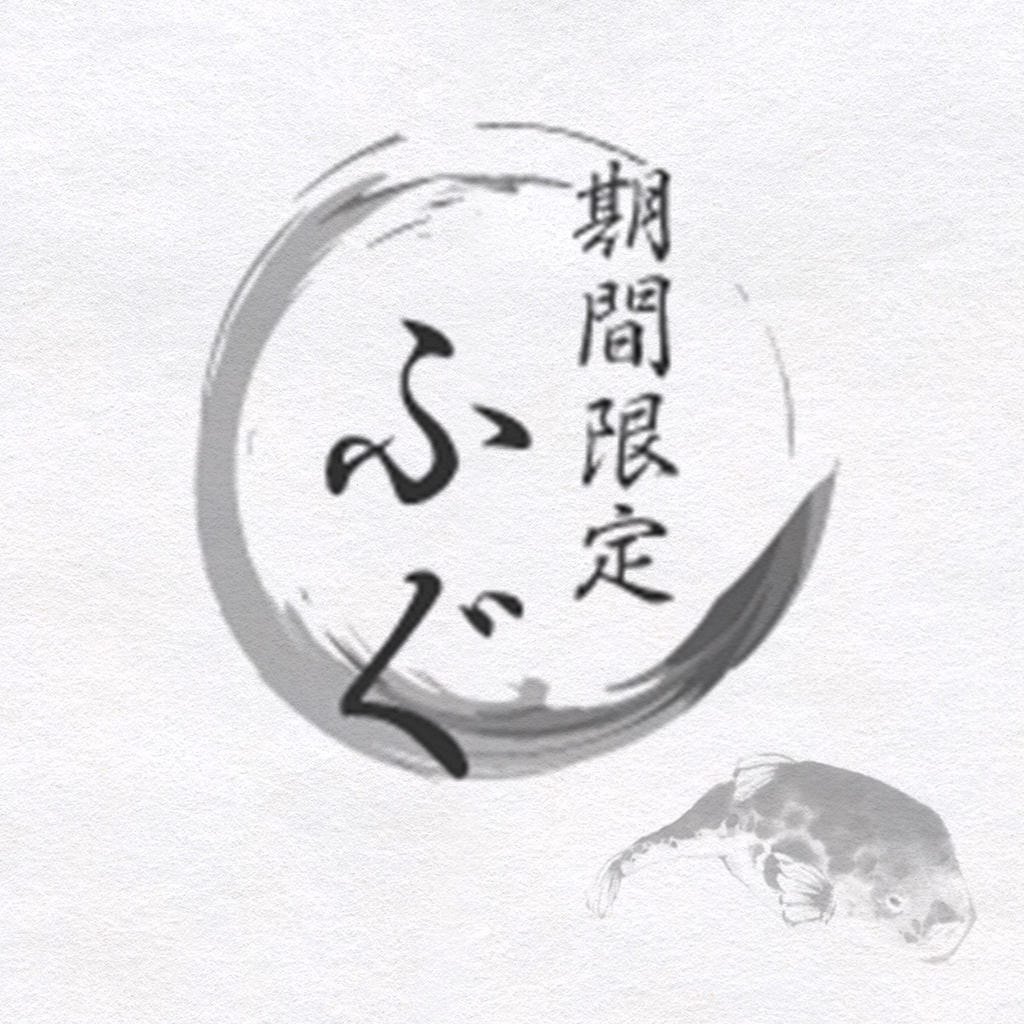 期間限定
ふぐ